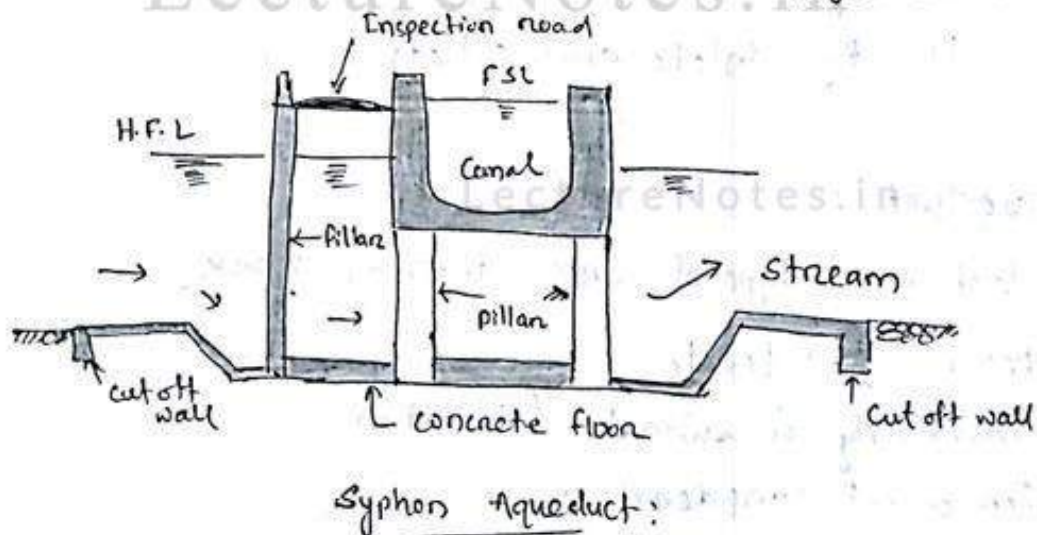 LectureNotes.in
Inspection road
FSL
H.F.L
Canal
LectureNotes.in
pillar
Stream
pillar
cut off
wall
concrete floor
Cut off wall
Syphon Aqueduct: